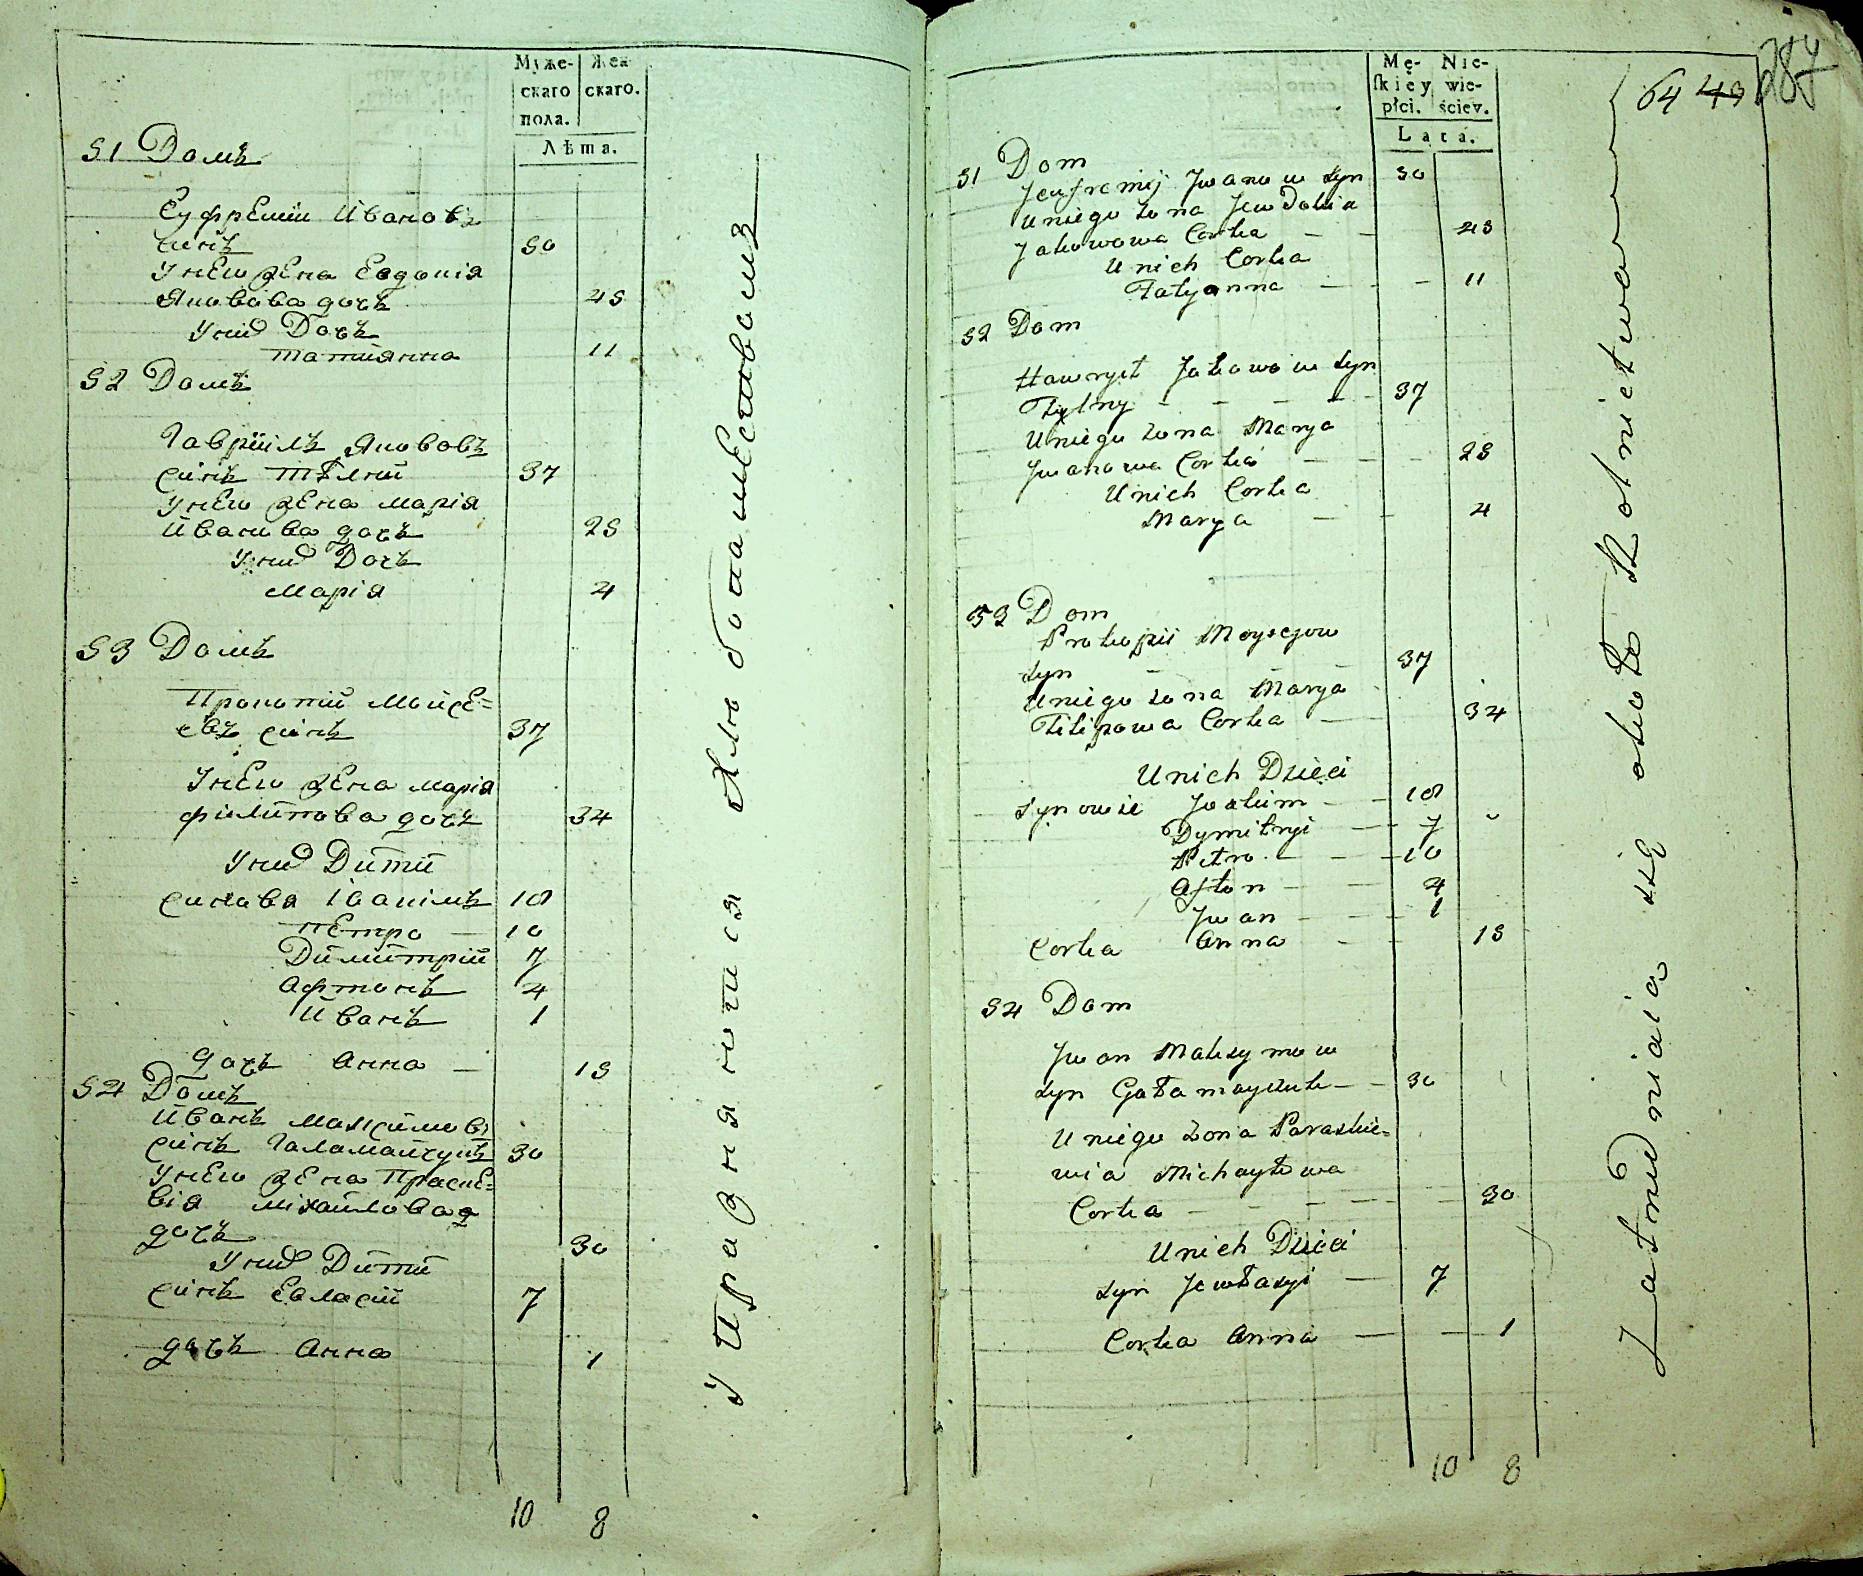 Муже- Жен
скаго скаго.
пола.
Лѣта.
51 Домъ
Еуфремїи Ивановъ
синъ 50
У нею жена Евдокія
Яковова дочъ 45
У них Дочъ
Татиянна 11
52 Домъ
Гаврїилъ Якововъ
синъ Тѣлній 37
У нею жена Марія
Иванова дочъ 25
У них Дочъ
Марія 4
53 Домъ
Прокопій Мойсе=
евъ синъ 37
У нею жена Марія
Филипова дочъ 34
У них Дити
Синовя Іоакімъ 18
Петро — 10
Димитрій 7
Афтонъ 4
Иванъ 1
дочъ Анна — 15
54 Домъ
Иванъ Максимовъ
синъ Галамайчукъ 30
У нею жена Параске=
вія Міхайлова
дочъ 30
У них Дити
синъ Евласій 7
дочъ Анна 1
10 8
Упражняютися хлѣбопашествомъ
64 43 284
Mę- Nie-
skiey wie-
płci. ściey.
Lata.
51 Dom
Jeufremij Jwanow syn 50
U niego żona Jewdokia
Jakowowa Corka — — 45
U nich Corka
Tatyanna — — 11
52 Dom
Hawrył Jakowow syn
Tylny — — — — 37
U niego żona Marya
Jwanowa Corka — — 25
U nich Corka
Marya — — 4
53 Dom
Prokopii Moysejow
syn — — 37
U niego żona Marya
Filipowa Corka — 34
U nich Dzieci
Synowie Joakim — — 18
Dymitryi — — 7
Petro — — — 10
Afton — — 4
Jwan — — — 1
Corka Anna — — 15
54 Dom
Jwan Maksymow
syn Gałamayczuk — — 30
U niego żona Paraskie=
wia Michayłowa
Corka — — — — — 30
U nich Dzieci
Syn Jewłasyi — 7
Corka Anna — — 1
10 8
Zatrudniaią się około Rolnictwa